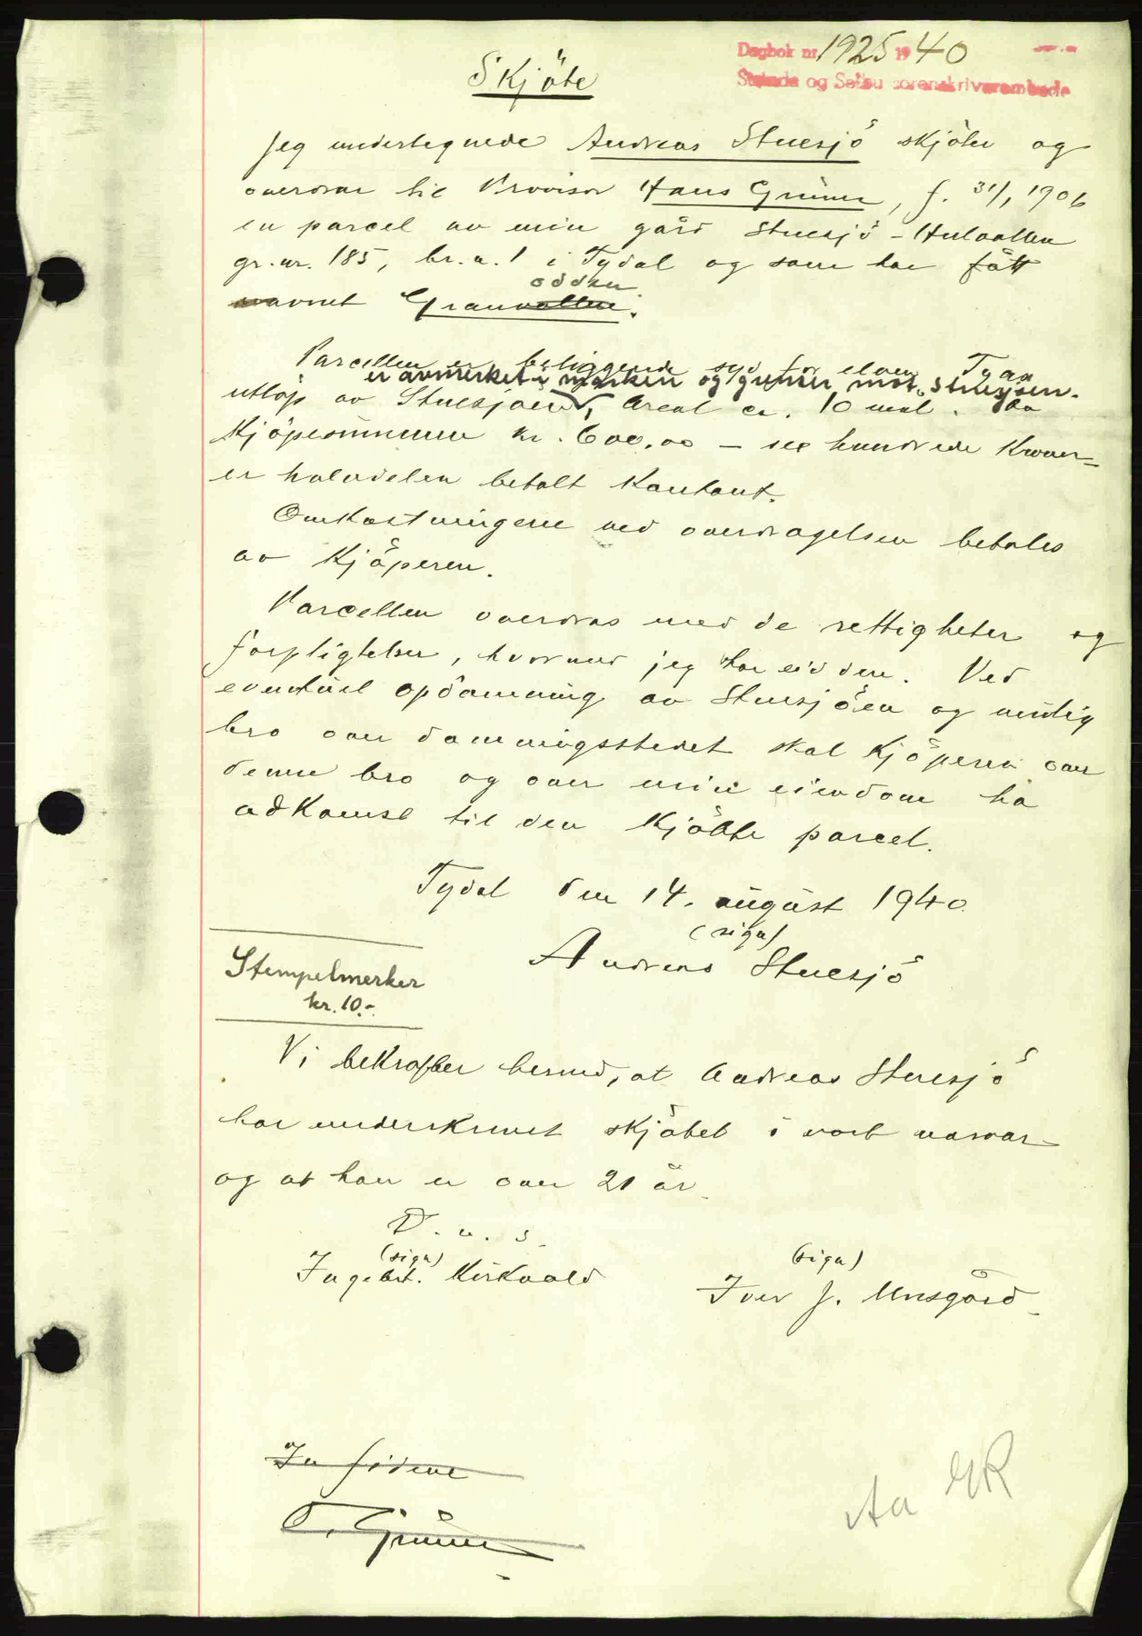 Dagbok nr 1925 1940
Strinda og Selbu sorenskriverembede
Skjöte
Jeg undertegnede Andreas Stuesjö skjöter og
overdrar til Provisor Hans Grüner, f. 31/1 1906
en parcel av min gård Stuesjö - Hulvollen
gr.nr. 185, br.n. 1 i Tydal og som har fått
odden
navnet Granvollen.
Parcellen er beliggende syd for elven Tyas
er avmerket i marken og grenser mot Stuesjøen.
utlöp av Stuesjoen, Areal ca. 10 mål. Av
Kjöpesummen kr. 600,00 - sex hundrede Kroner -
er halvdelen betalt Kontant.
Omkostningene ved overdragelsen betales
av Kjöperen.
Parcellen overdras med de rettigheter og
forpligtelser, hvormed jeg har eid den. Ved
eventuel opdamning av Stuesjöen og mulig
bro over damningsstedet skal Kjöperen over
denne bro og over min eiendom ha
adkomst til den Kjöbte parcel.
Tydal den 14. august 1940.
(sign)
Andreas Stuesjö
Stempelmerker
kr. 10.-
Vi bekrefter herved, at Andreas Stuesjö
har underskrevet skjötet i vort nærvær -
og at han er over 21 år.
D. u. s.
(sign)
Ingebrt. Kirkvold
(sign)
Iver J. Unsgård
In fidem
O. Grüner
Aa GR